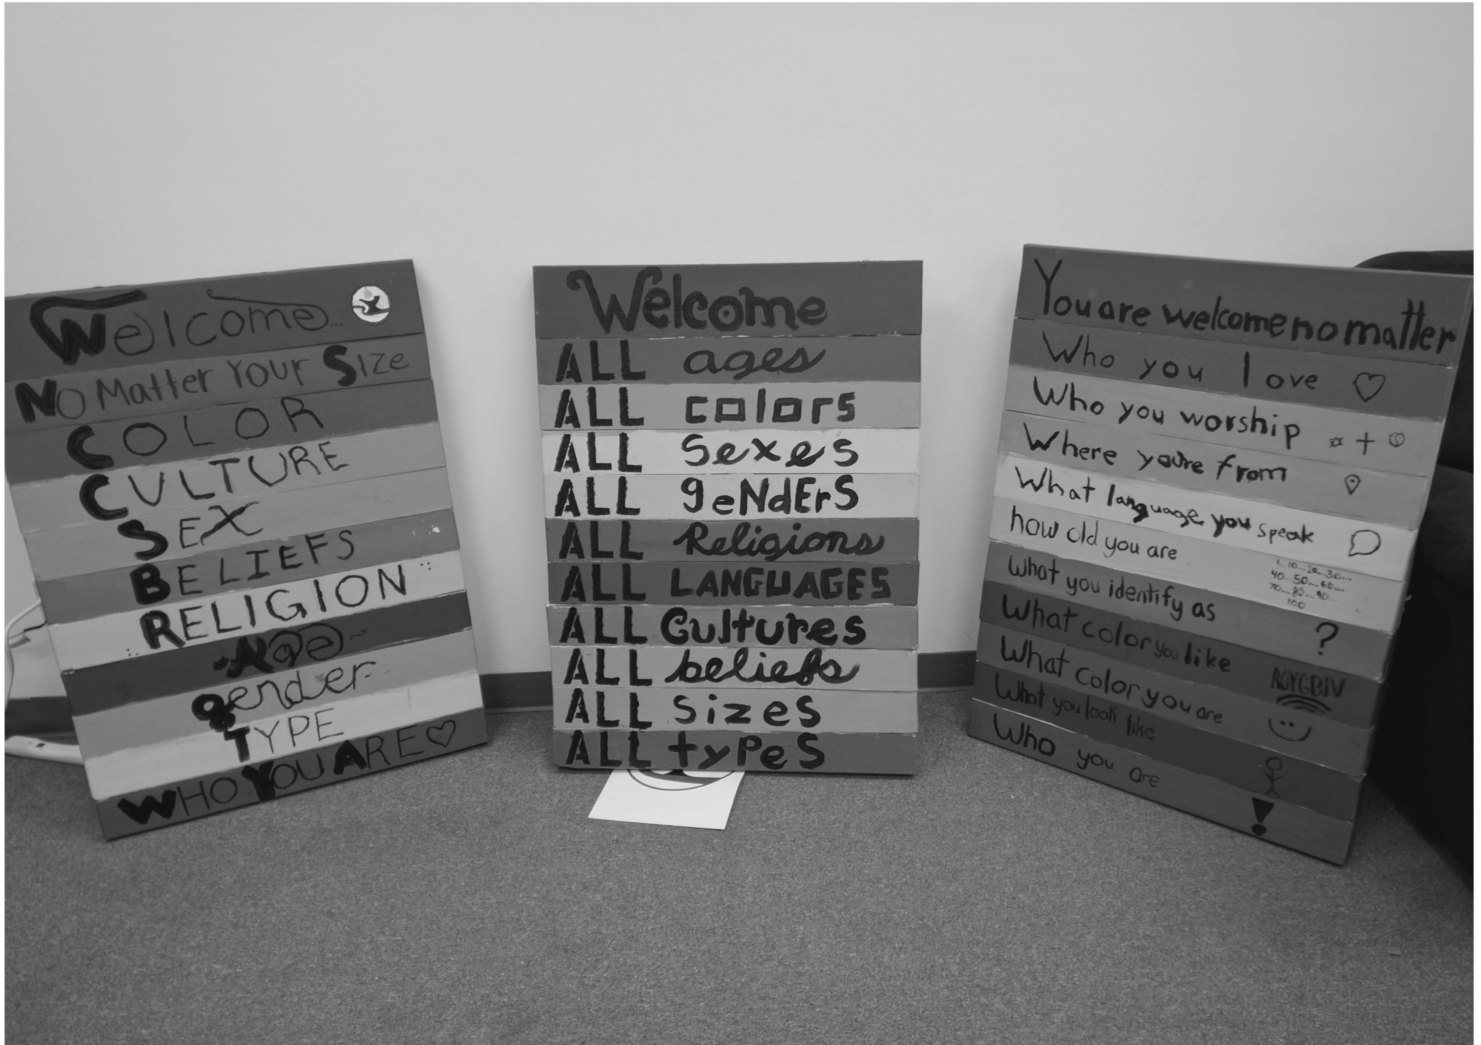 Welcome...
No Matter Your Size
COLOR
CULTURE
SEX
BELIEFS
RELIGION
Age
gender
& TYPE
WHO YOU ARE
Welcome
ALL ages
ALL colors
ALL Sexes
ALL geNdErS
ALL Religions
ALL LANGUAGES
ALL Cultures
ALL beliefs
ALL sizes
ALL types
You are welcome no matter
Who you love
Who you worship
Where you're from
What language you speak
how old you are
1...10...20...30...
40...50...60...
70...80...90
100
What you identify as ?
What color you like
ROYGBIV
What color you are
What you look like
Who you are !